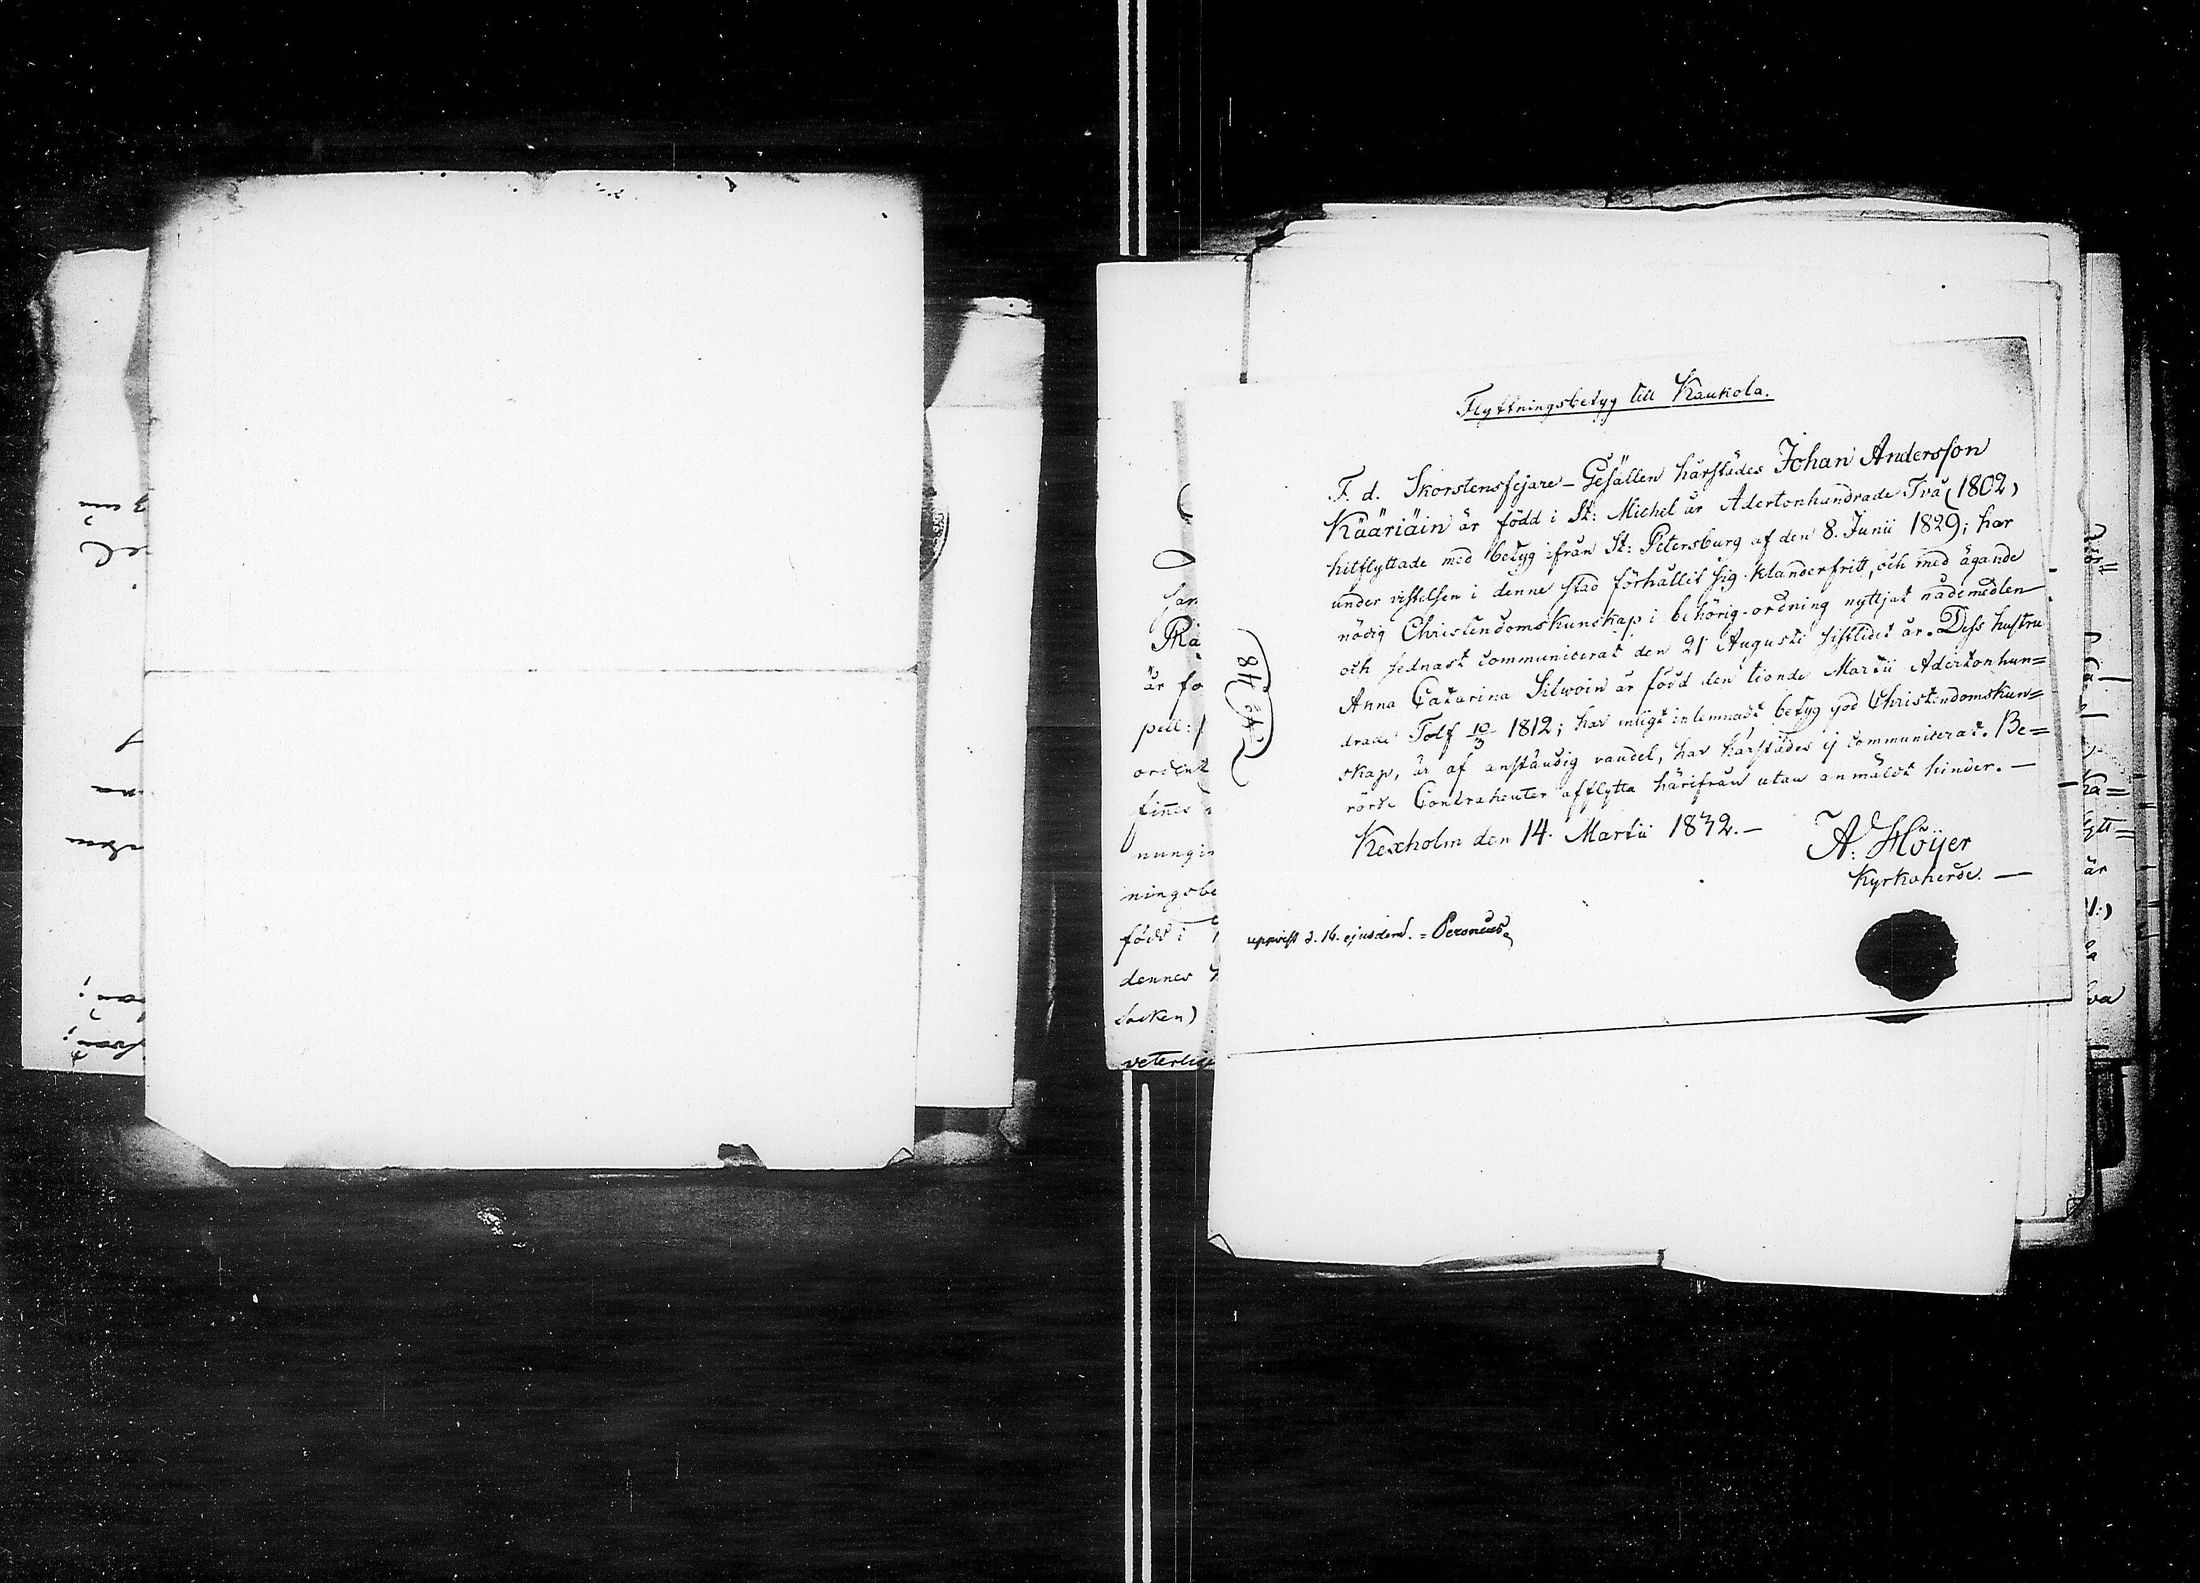 Flyttningsbetyg till Kaukola.
F. d. Skorstensfejare-Gesällen härstädes Johan Andersson
Kääriäin är född i St: Michel år Adertonhundrade Två (1802)
hitflyttade med betyg ifrån St: Petersburg af den 8. Junii 1829; har
under vistelsen i denne stad förhållit sig klanderfritt, och med ägande
nödig Christendomskunskap i behörig ordning nyttjat nådemedlen
och sednast communicerat den 21 Augusti sistlidet år. Dess hustru
Anna Catarina Silwoin är född den tionde Martii Adertonhun=
drade Tolf 10/3 1812; har enligt inlemnadt betyg god Christendomskun=
skap, är af anständig vandel, har härstädes ej communicerat. Be=
rörde Contrahenter afflytta härifrån utan anmäldt hinder. —
Kexholm den 14. Martii 1832. —
A: Höijer
Kyrkoherde. —
uppvist d. 16. ejusdem. = Peroneus
84
är fö
ordent
ningsbe
född i
dennes
Socken)
veterli
är